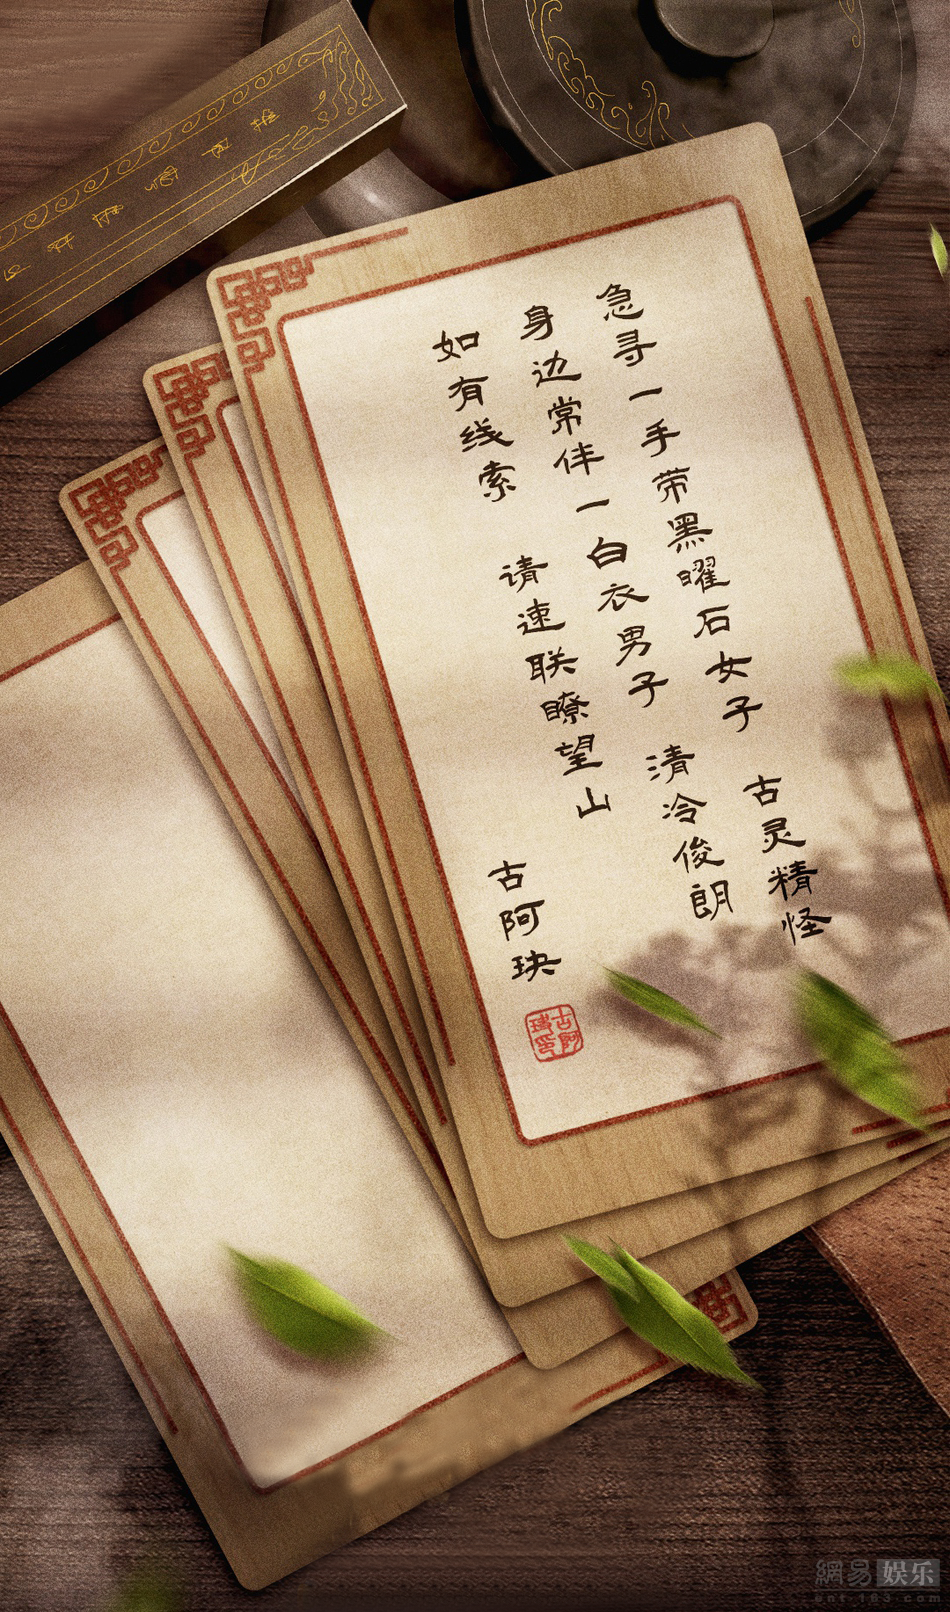 急寻一手带黑曜石女子 古灵精怪
身边常伴一白衣男子 清冷俊朗
如有线索 请速联瞭望山
古阿玦
古阿
玦印
網易娱乐
ent.163.com